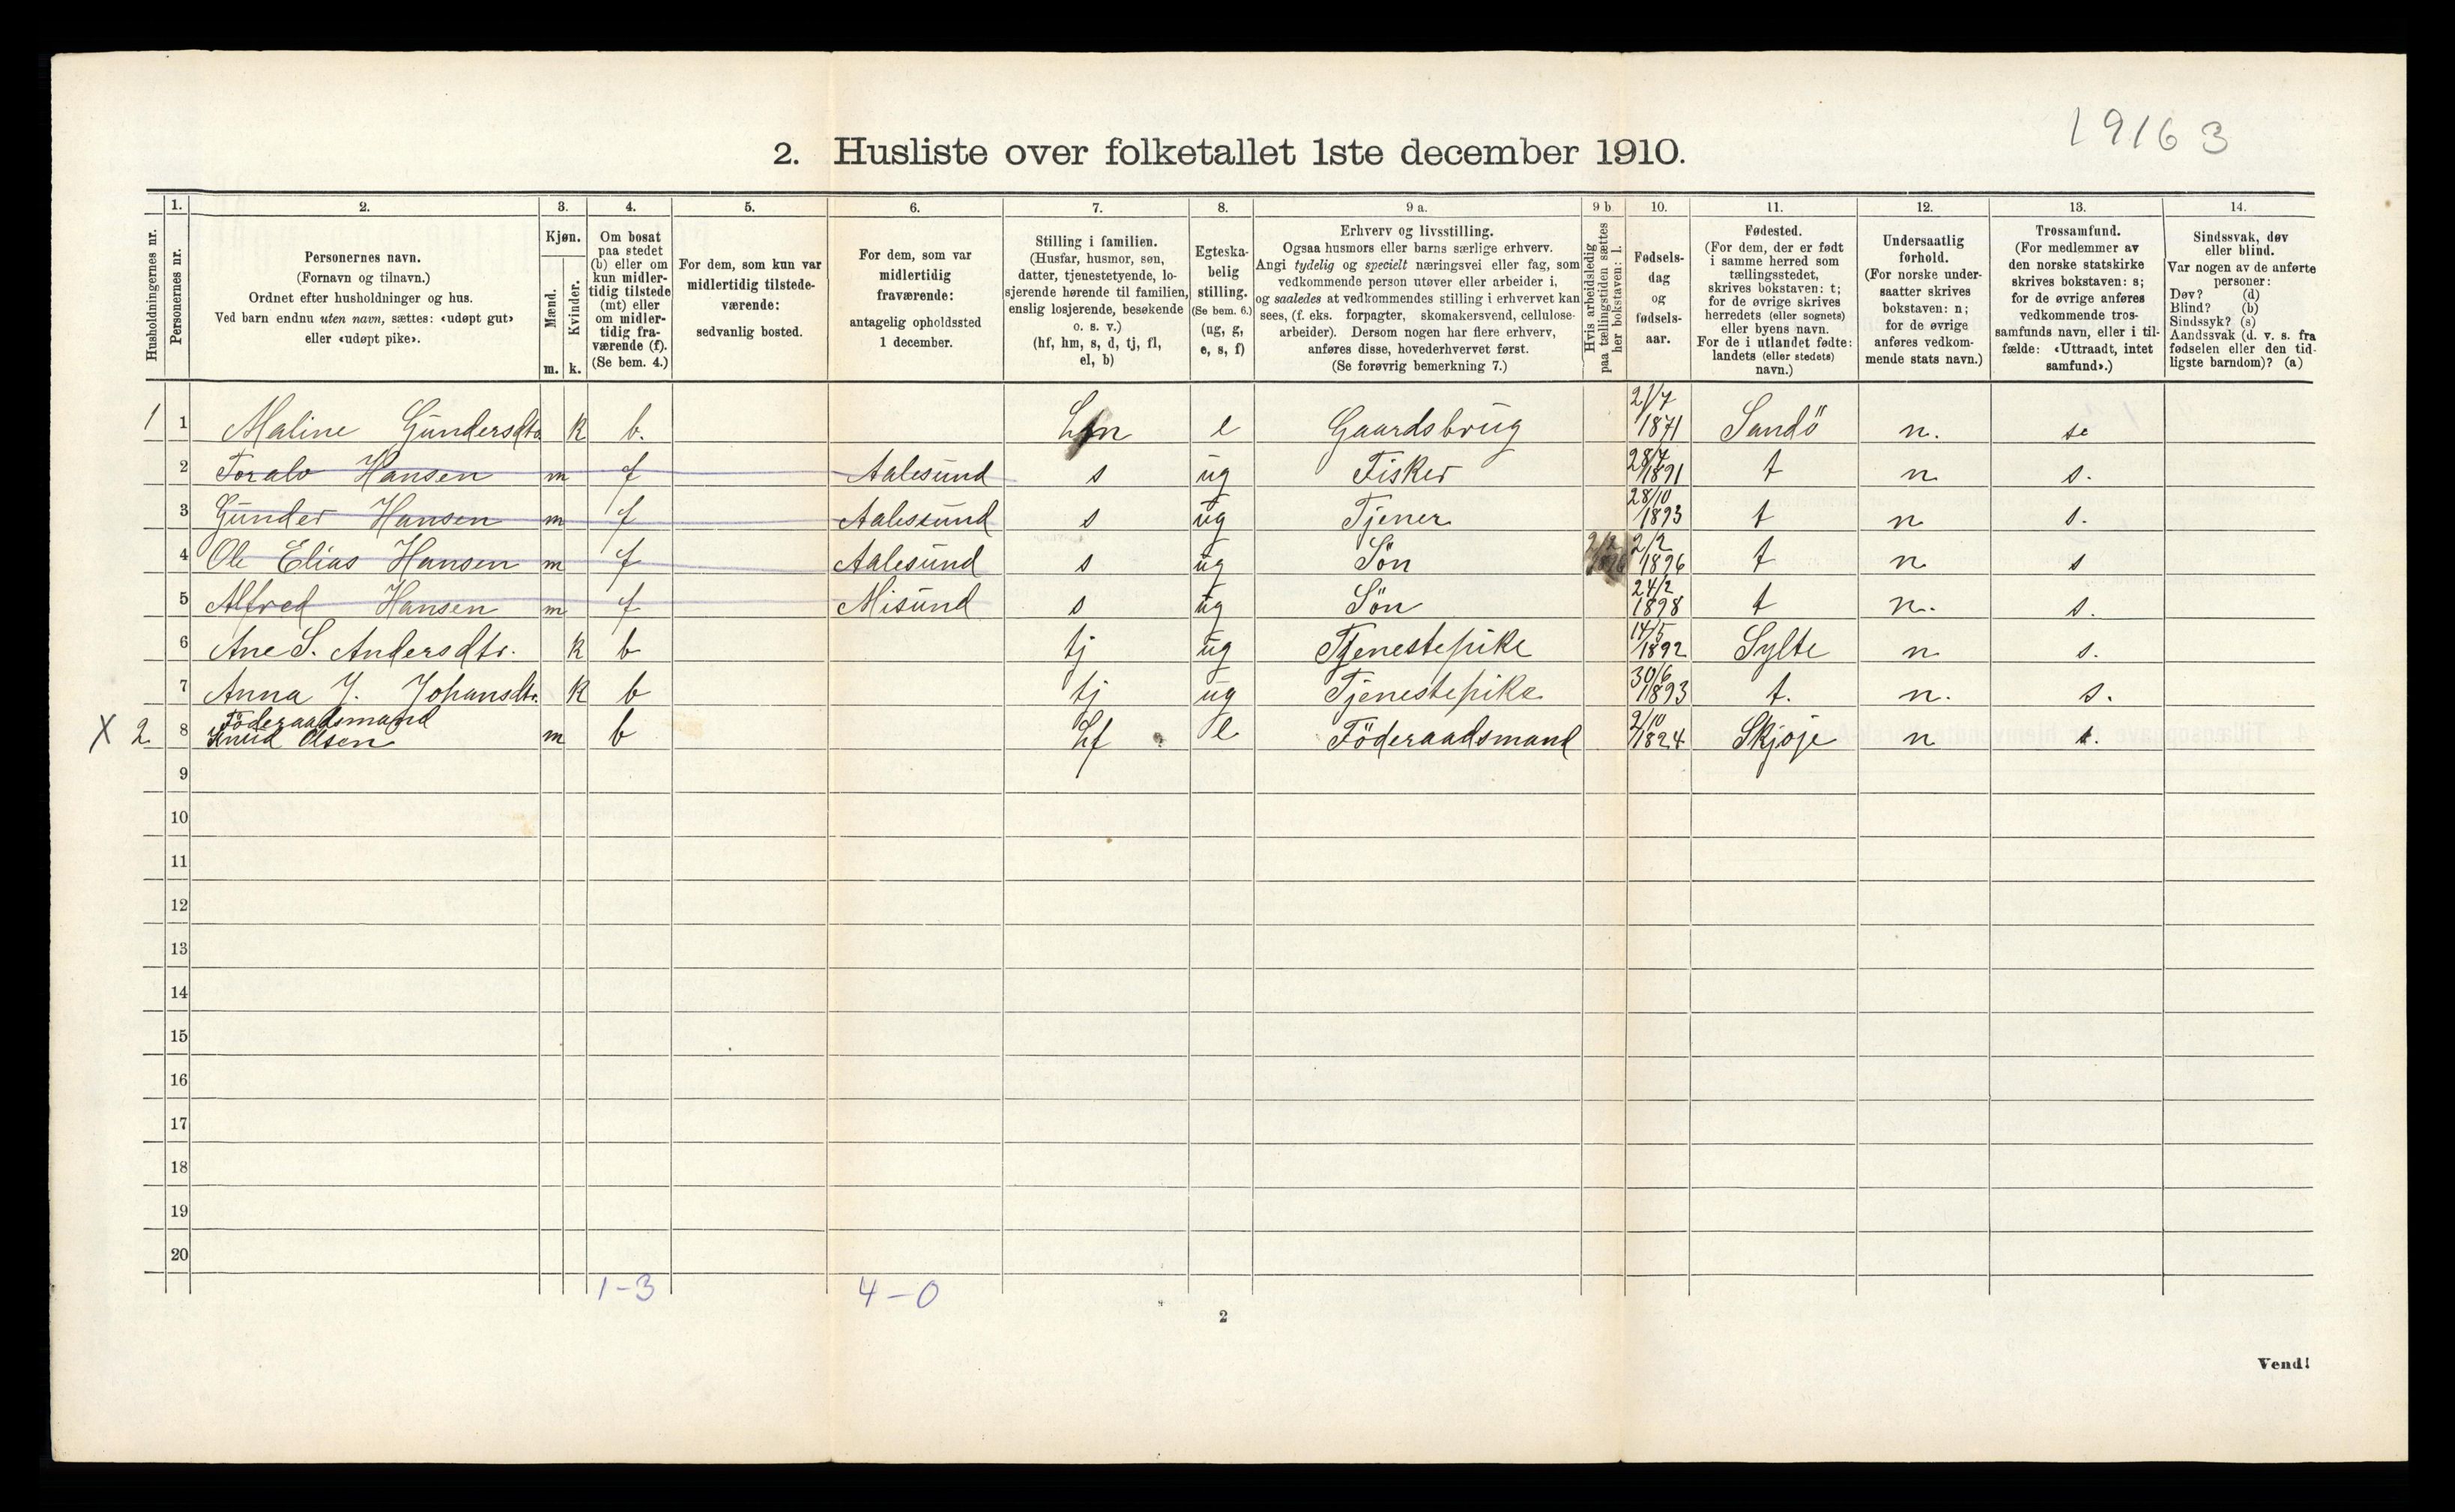 19163
2. Husliste over folketallet 1ste december 1910.
1. 2. 3. 4. 5. 6. 7. 8. 9 a. 9 b 10. 11. 12. 13. 14.
Husholdningernes nr.
Personernes nr.
Personernes navn.
(Fornavn og tilnavn.)
Ordnet efter husholdninger og hus.
Ved barn endnu uten navn, sættes: «udøpt gut»
eller «udøpt pike».
Kjøn.
Mænd.
Kvinder.
m. k.
Om bosat
paa stedet
(b) eller om
kun midler-
tidig tilstede
(mt) eller
om midler-
tidig fra-
værende (f).
(Se bem. 4.)
For dem, som kun var
midlertidig tilstede-
værende:
sedvanlig bosted.
For dem, som var
midlertidig
fraværende:
antagelig opholdssted
1 december.
Stilling i familien.
(Husfar, husmor, søn,
datter, tjenestetyende, lo-
sjerende hørende til familien,
enslig losjerende, besøkende
o. s. v.)
(hf, hm, s, d, tj, fl,
el, b)
Egteska-
belig
stilling.
(Se bem. 6.)
(ug, g,
e, s, f)
Erhverv og livsstilling.
Ogsaa husmors eller barns særlige erhverv.
Angi tydelig og specielt næringsvei eller fag, som
vedkommende person utøver eller arbeider i,
og saaledes at vedkommendes stilling i erhvervet kan
sees, (f. eks. forpagter, skomakersvend, cellulose-
arbeider). Dersom nogen har flere erhverv,
anføres disse, hovederhvervet først.
(Se forøvrig bemerkning 7.)
Hvis arbeidsledig
paa tællingstiden sættes
her bokstaven: l.
Fødsels-
dag
og
fødsels-
aar.
Fødested.
(For dem, der er født
i samme herred som
tællingsstedet,
skrives bokstaven: t;
for de øvrige skrives
herredets (eller sognets)
eller byens navn.
For de i utlandet fødte:
landets (eller stedets)
navn.)
Undersaatlig
forhold.
(For norske under-
saatter skrives
bokstaven: n;
for de øvrige
anføres vedkom-
mende stats navn.)
Trossamfund.
(For medlemmer av
den norske statskirke
skrives bokstaven: s;
for de øvrige anføres
vedkommende tros-
samfunds navn, eller i til-
fælde: «Uttraadt, intet
samfund».)
Sindssvak, døv
eller blind.
Var nogen av de anførte
personer:
Døv? (d)
Blind? (b)
Sindssyk? (s)
Aandssvak (d. v. s. fra
fødselen eller den tid-
ligste barndom)? (a)
1 1 Maline Gundersdtr k b. e Gaardsbrug 21/7 1871 Sandö n.
2 Toralv Hansen m f Aalesund s ug Fisker 28/7 1891 t n s.
3 Gunder Hansen m f Aalesund s ug Tjener 28/10 1893 t n s.
4 Ole Elias Hansen m f Aalesund s ug Sön 2/2 1896 t n s
5 Alfred Hansen m f Misund s ug Sön 24/2 1898 t n. s.
6 Ane S. Andersdtr. k b tj ug Tjenestepike 14/5 1892 Sylte n s.
7 Anna J. Johansdtr. k b tj ug Tjenestepike 30/6 1893 t. n. s.
Föderaadsmand
X 2 8 Knud Olsen m b hf e Föderaadsmand 2/10 1824 Skjoje n s.
9
10
11
12
13
14
15
16
17
18
19
20
1-3 4-0
2
Vend!